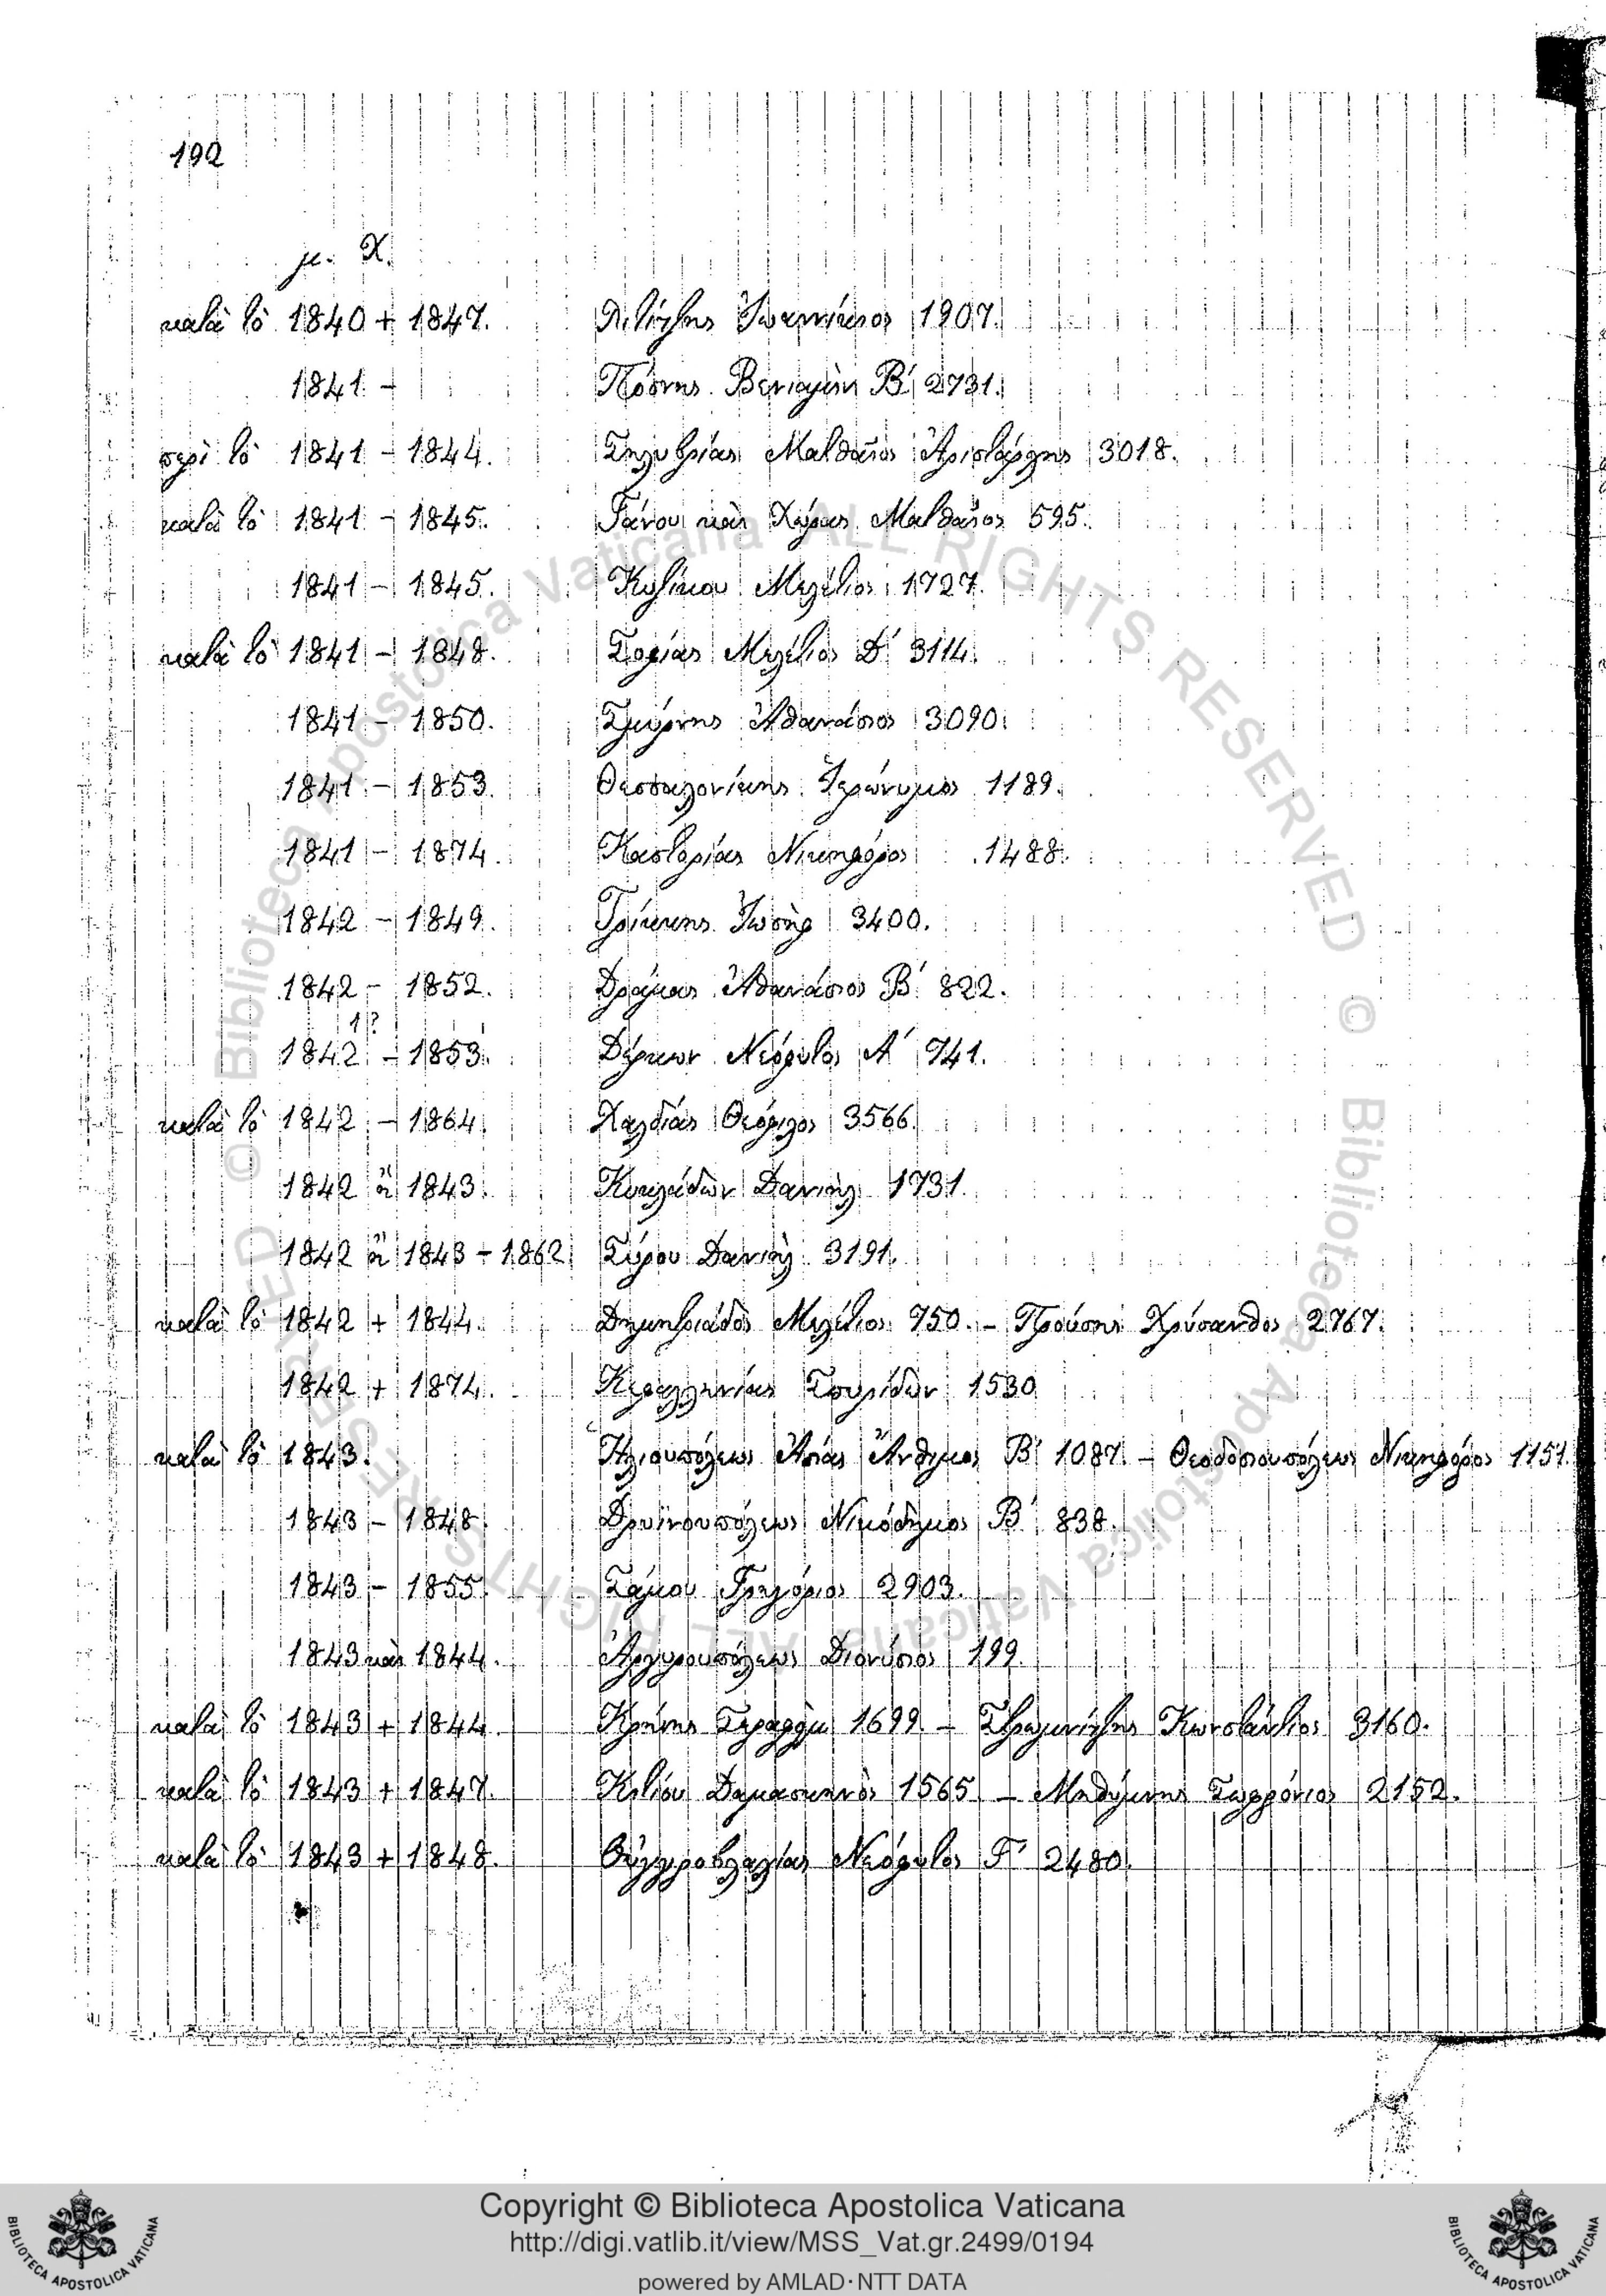 192
μ. Χ.
κατὰ τὸ 1840 + 1847. Λιτίτζης Ἰωαννίκιος 1907.
1841 - Πόσνης Βενιαμὶν Β΄ 2731.
περὶ τὸ 1841 - 1844. Σηλυβρίας Ματθαῖος Ἀριστάρχης 3018.
κατὰ τὸ 1841 - 1845. Γάνου καὶ Χώρας Ματθαῖος 595.
1841 - 1845. Κυζίκου Μελέτιος 1727.
κατὰ τὸ 1841 - 1848. Σοφίας Μελέτιος Δ΄ 3114.
1841 - 1850. Σμύρνης Ἀθανάσιος 3090.
1841 - 1853. Θεσσαλονίκης Ἱερώνυμος 1189.
1841 - 1874. Καστορίας Νικηφόρος 1488.
1842 - 1849. Τρίκκης Ἰωσὴφ 3400.
1842 - 1852. Δράμας Ἀθανάσιος Β΄ 822.
1?
1842 - 1853. Δέρκων Νεόφυτος Α΄ 741.
κατὰ τὸ 1842 - 1864. Χαλδίας Θεόφιλος 3566.
1842 ἢ 1843. Κυκλάδων Δανιὴλ 1731.
1842 ἢ 1843 - 1862. Σύρου Δανιὴλ 3191.
κατὰ τὸ 1842 + 1844. Δημητριάδος Μελέτιος 750. - Προύσης Χρύσανθος 2767.
1842 + 1874. Κεφαλληνίας Σπυρίδων 1530
κατὰ τὸ 1843. Ἡλιουπόλεως Ἀσίας Ἄνθιμος Β΄ 1087. - Θεοδοσιουπόλεως Νικηφόρος 1151.
1843 - 1848. Δρυϊνουπόλεως Νικόδημος Β΄ 838.
1843 - 1855. Σάμου Γρηγόριος 2903.
1843 καὶ 1844. Ἀργυρουπόλεως Διονύσιος 199.
κατὰ τὸ 1843 + 1844. Κρήνης Σεραφεὶμ 1699 - Στρωμνίτζης Κωνστάντιος 3160.
κατὰ τὸ 1843 + 1847. Κιτίου Δαμασκηνὸς 1565 - Μηθύμνης Σωφρόνιος 2152.
κατὰ τὸ 1843 + 1848. Οὐγγροβλαχίας Νεόφυτος Γ΄ 2480.
© Biblioteca Apostolica Vaticana ALL RIGHTS RESERVED © Biblioteca Apostolica Vaticana ALL RIGHTS RESERVED
BIBLIOTECA APOSTOLICA VATICANA
Copyright © Biblioteca Apostolica Vaticana
http://digi.vatlib.it/view/MSS_Vat.gr.2499/0194
powered by AMLAD·NTT DATA
BIBLIOTECA APOSTOLICA VATICANA